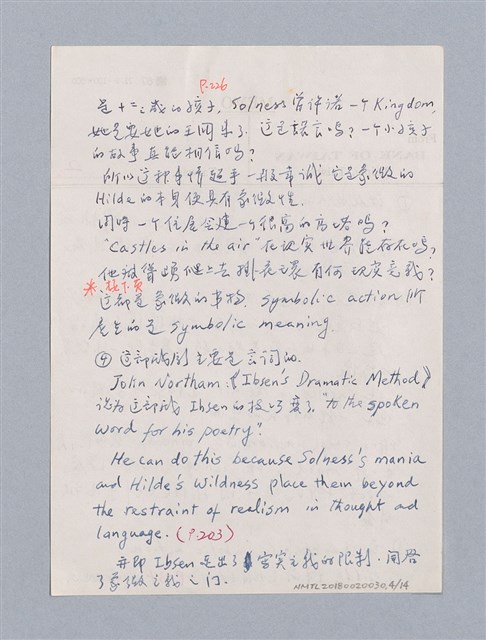 P.226
是十二、三歲的孩子, Solness 曾许诺一个 Kingdom,
她是要她的王国来了. 这是謊言吗? 一个小孩子
的故事真能相信吗?
所以这种事情超乎一般常识 它是象徵的
Hilde 的本身便具有象徵性.
同時一个住屋会建一个很高的高塔吗?
"Castles in the air" 在现实世界能存在吗?
他被督頭爬上去掛花環有何现实意義?
※ 接下頁
这都是象徵的事物. symbolic action 所
產生的是 symbolic meaning.
④ 这部戏剧主要是言词的.
John Northam:《Ibsen's Dramatic Method》
認为这部戏 Ibsen 的技巧变了. "to the spoken
word for his poetry".
He can do this because Solness's mania
and Hilde's wildness place them beyond
the restraint of realism in thought ad
language. (P.203)
亦即 Ibsen 走出了 写实主義的限制. 開啓
了象徵主義之门.
NMTL20180020030.4/14